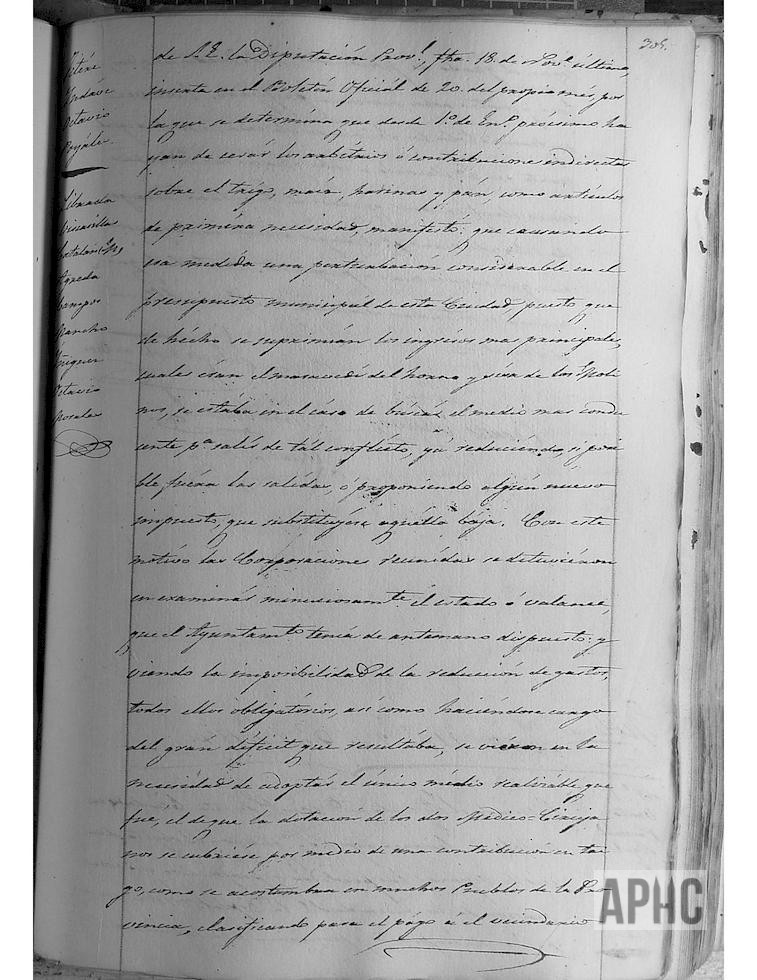 305.
Octavio
de S.E. la Diputación Prov.l, fha. 18. de Nov.e último,
inserta en el Boletín Oficiál de 20. del própio més, por
la que se determína que desde 1.o de En.o prócsimo ha
yan de cesár los arbitrios ó contribuciones indirectas
sobre el trigo, maiz, harinas y pán, como artículos
de priméra necesidad, manifestó, que causando
esa medida una perturbación considerable en el
presupuesto municipál de esta Ciudad, puesto que
de hécho se suprimían los ingrésos mas principales,
cuales éran el maravedí del horno y sisa de los Moli
nos, se estaba en el cáso de buscár el médio mas condu
cente p.a salír de tál conflicto, yá reduciendo, si posi
ble fuéra las salídas, ó proponiendo algún nuevo
impuesto, que substituyése aquélla bája. Con este
motívo las Corporaciones reunídas se detuviéron
en examinár minuciosam.te el estado ó valance,
que el Ayuntam.to tenía de antemano dispuesto: y
viendo la imposibilidad de la reducción de gastos,
todos ellos obligatórios, así como haciéndose cargo
del grán déficit que resultába, se viéron en la
necesidad de adoptár el único médio realizáble que
fue, él de que la dotación de los dos Médico-Ciruja
nos se cubriése por médio de una contribución en tri
go, como se acostumbra en muchos Pueblos de la Pro
vincia, clasificando para el págo á el vecindario
Librada
Catalán
Agueda
Campos
Sancho
Iñiguez
Octavio
Morales
APHC